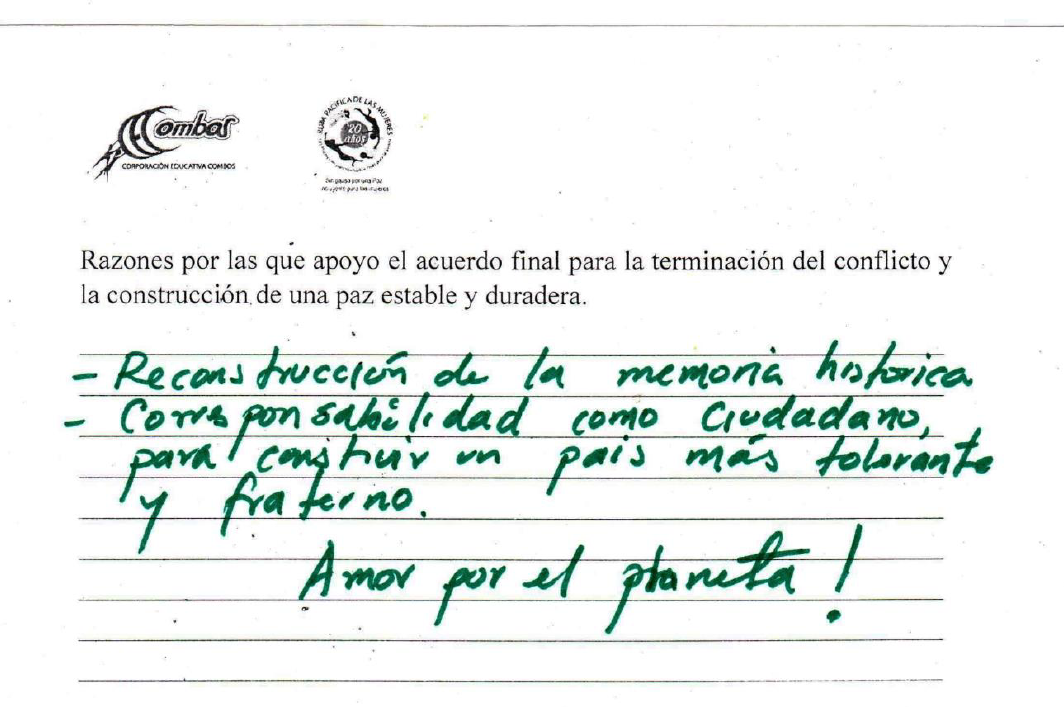 Combos
CORPORACIÓN EDUCATIVA COMBOS
RUTA PACIFICA DE LAS MUJERES
20
años
Razones por las que apoyo el acuerdo final para la terminación del conflicto y
la construcción de una paz estable y duradera.
- Reconstrucción de la memoria historica
- Corresponsabilidad como Ciudadano,
para construir un pais más tolerante
y fraterno.
Amor por el planeta!